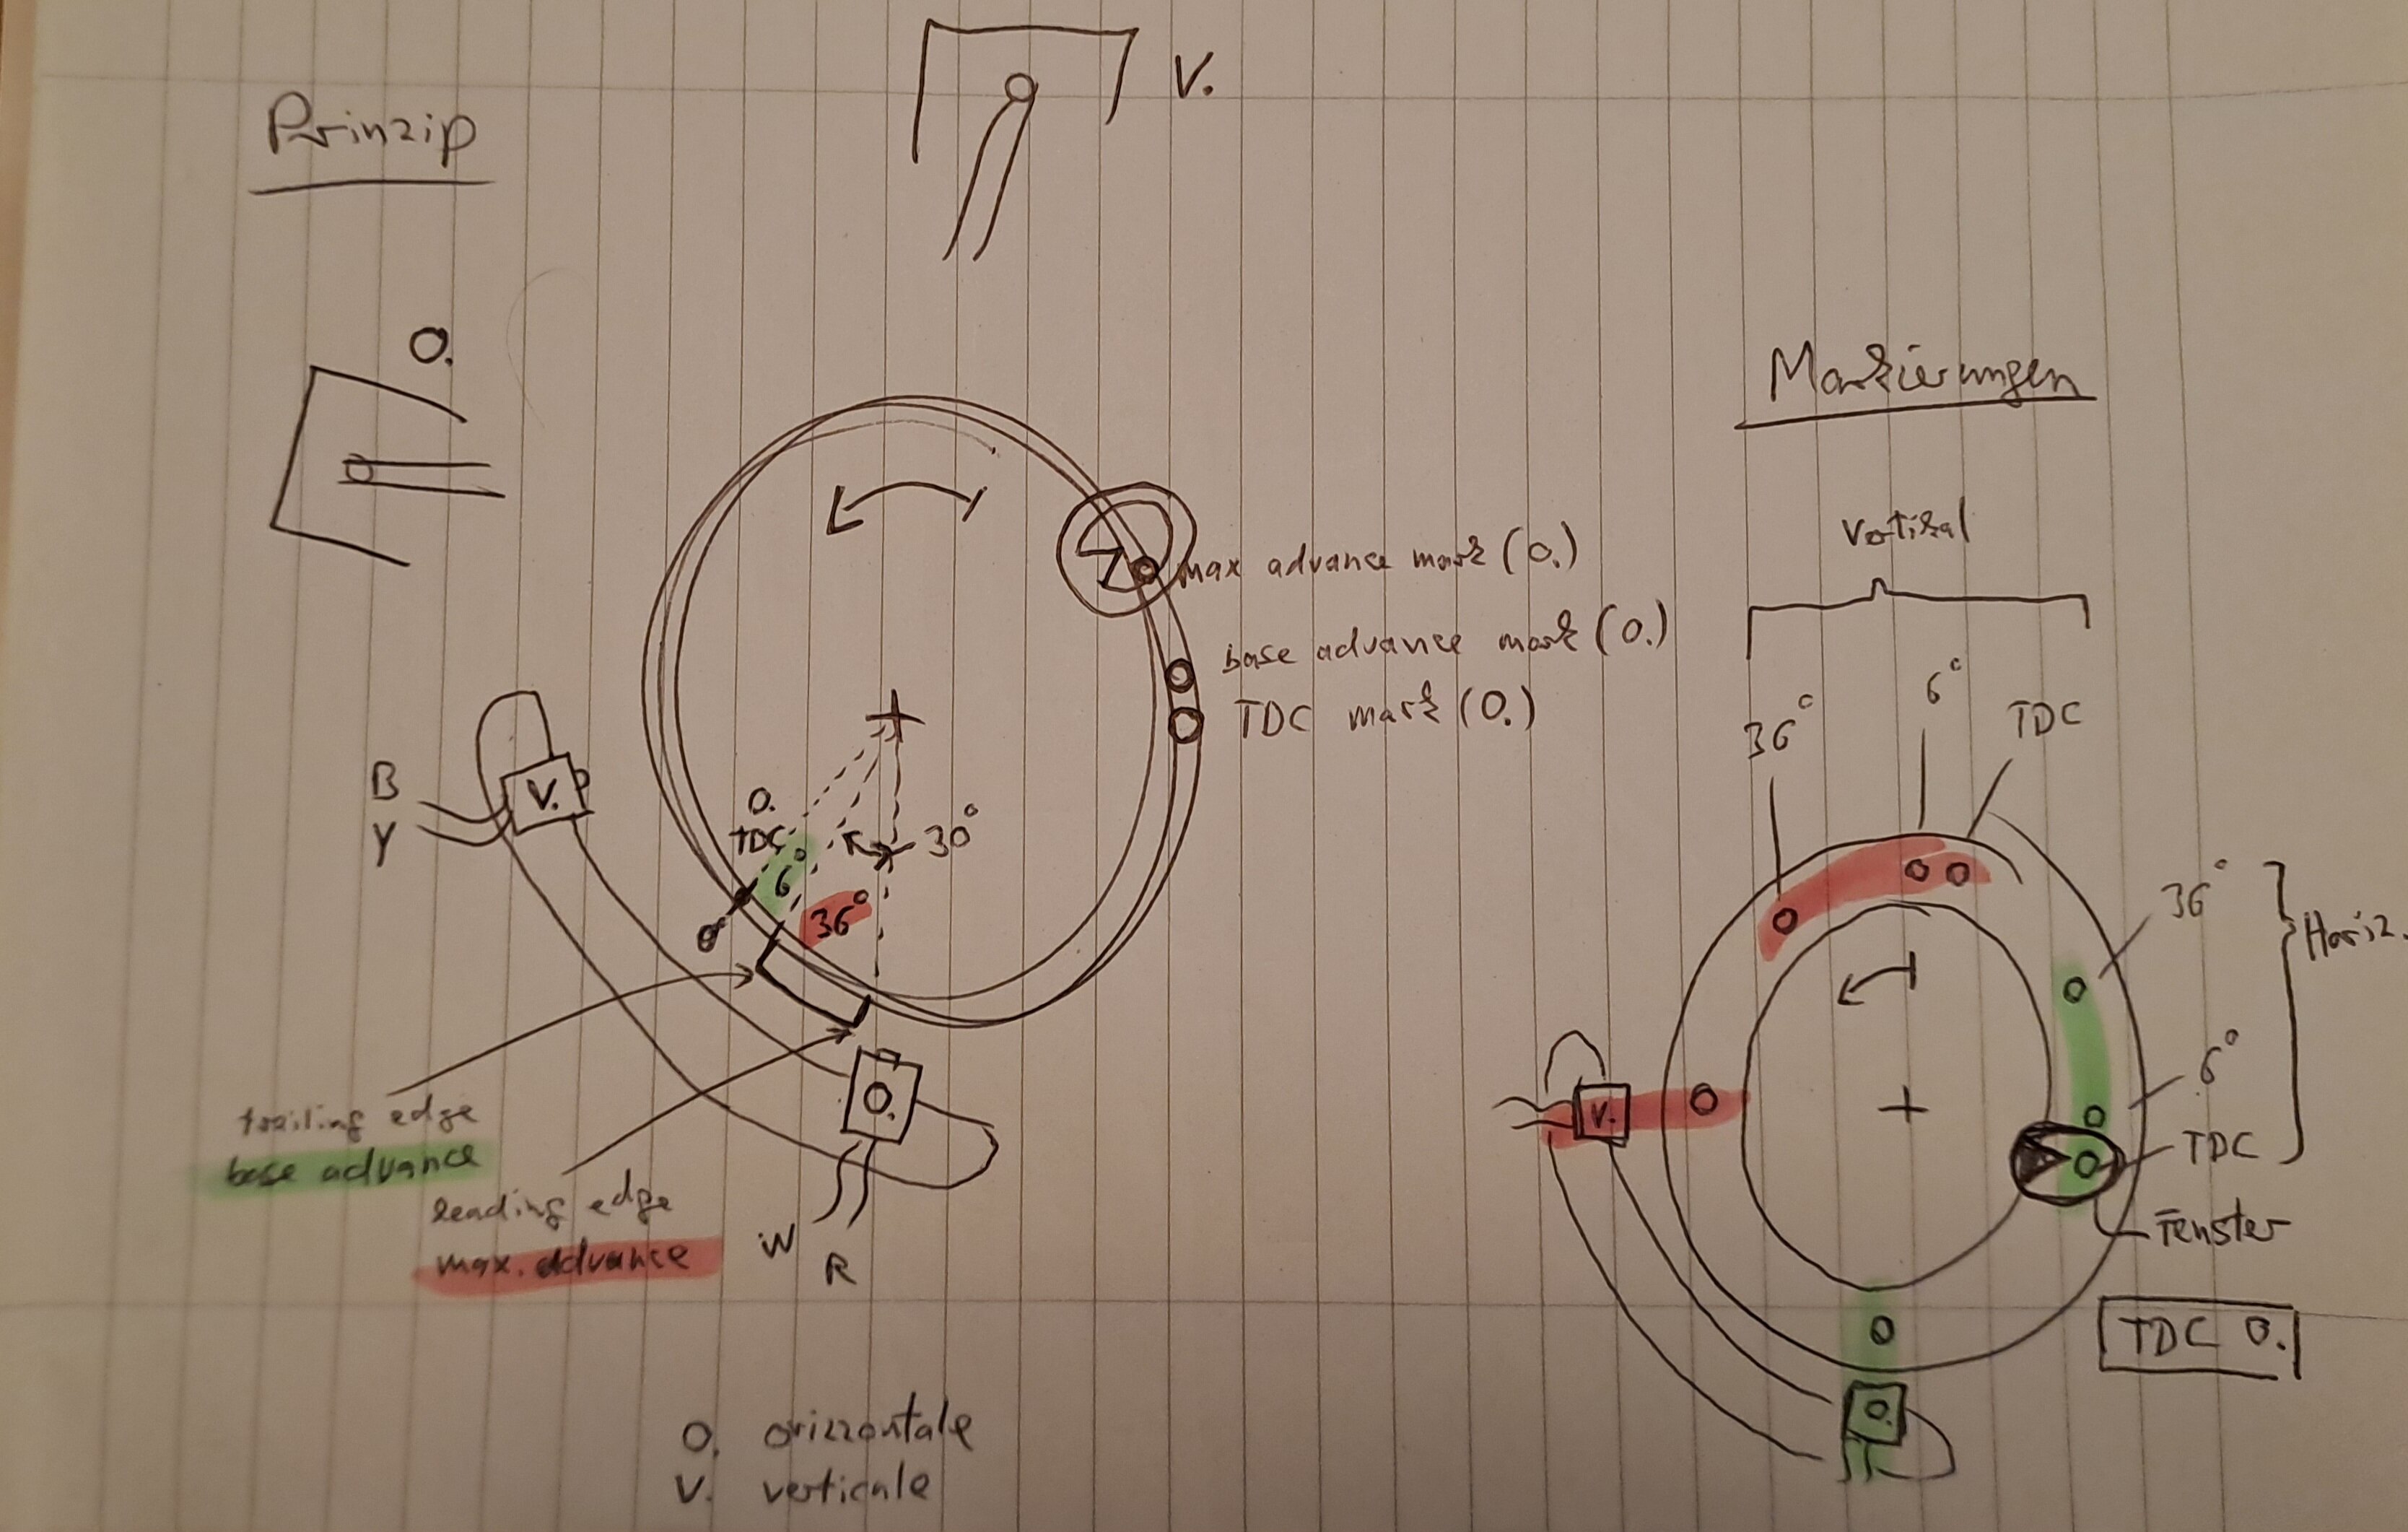 V.
Prinzip
O.
Markierungen
max advance mark (O.)
base advance mark (O.)
TDC mark (O.)
Vertikal
36°
6°
TDC
B
Y
V.
O.
TDC
6°
30°
36°
36°
Horiz.
6°
TDC
Fenster
TDC O.
V.
O.
trailing edge
base advance
leading edge
max. advance
O.
W
R
O. orizzontale
V. verticale